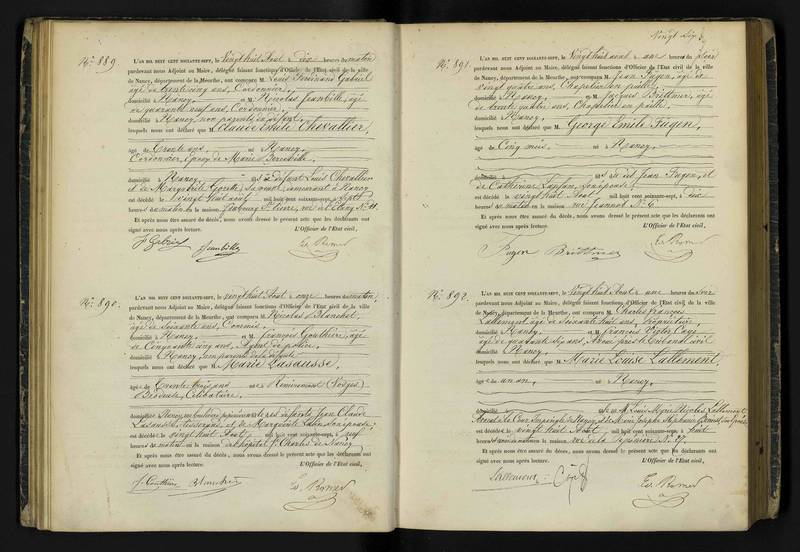 N.º 889.
L'AN MIL HUIT CENT SOIXANTE-SEPT, le Vingt huit Août à dix heures du matin
pardevant nous Adjoint au Maire, délégué faisant fonctions d'Officier de l'Etat civil de la ville
de Nancy, département de la Meurthe, ont comparu M. Louis Ferdinand Gabriel
âgé de trente cinq ans, Cordonnier,
domicilié à Nancy et M. Nicolas Jeanbille, âgé
de quarante neuf ans, Cordonnier,
domicilié à Nancy, non parents du défunt
lesquels nous ont déclaré que M. Claude Emile Chevallier,
âgé de Trente ans, né Nancy,
Cordonnier, Epoux de Marie
domicilié à Nancy, fils de défunt Louis Chevallier
et de Marguerite demeurant à Nancy
est décédé le vingt huit août mil huit cent soixante-sept, à Sept
heures du matin en la maison faubourg St. Pierre, rue de l'étang N.º 11
Et après nous être assuré du décès, nous avons dressé le présent acte que les déclarants ont
signé avec nous après lecture. L'Officier de l'Etat civil,
F. Gabriel Jeanbille
N.º 890.
L'AN MIL HUIT CENT SOIXANTE-SEPT, le vingt huit Août à onze heures du matin,
pardevant nous Adjoint au Maire, délégué faisant fonctions d'Officier de l'Etat civil de la ville
de Nancy, département de la Meurthe, ont comparu M. Nicolas Blanchet,
âgé de Soixante ans, Commis,
domicilié à Nancy et M. François Gouthière, âgé
de Cinquante cinq ans, Agent de police,
domicilié à Nancy, non parents de la défunte
lesquels nous ont déclaré que M. Marie Lasausse,
âgée de Trente trois ans née à Remiremont (Vosges)
Brodeuse, Célibataire,
domiciliée à Nancy, fille des défunts Jean Claude
Lasausse, et de Marguerite
est décédée le vingt huit Août mil huit cent soixante-sept, à neuf
heures du matin en la maison à l'hôpital St. Charles de Nancy
Et après nous être assuré du décès, nous avons dressé le présent acte que les déclarants ont
signé avec nous après lecture. L'Officier de l'Etat civil,
Blanchet
Vingt Six
N.º 891.
L'AN MIL HUIT CENT SOIXANTE-SEPT, le Vingt huit août à une heure du soir
pardevant nous Adjoint au Maire, délégué faisant fonctions d'Officier de l'Etat civil de la ville
de Nancy, département de la Meurthe, ont comparu M. Jean Fügen, âgé de
vingt quatre ans, Chapelier en paille,
domicilié à Nancy et M. Jacques Brüttmer, âgé
de trente quatre ans, Chapelier en paille,
domicilié à Nancy,
lesquels nous ont déclaré que M. George Emile Fügen,
âgé de Cinq mois, né à Nancy,
domicilié à fils de dit Jean Fügen, et
de Catherine
est décédé le vingt huit Août mil huit cent soixante-sept, à dix
heures du matin en la maison rue Jeannot N.º 6
Et après nous être assuré du décès, nous avons dressé le présent acte que les déclarants ont
signé avec nous après lecture. L'Officier de l'Etat civil,
Fügen
N.º 892.
L'AN MIL HUIT CENT SOIXANTE-SEPT, le Vingt huit Août à une heure du soir
pardevant nous Adjoint au Maire, délégué faisant fonctions d'Officier de l'Etat civil de la ville
de Nancy, département de la Meurthe, ont comparu M. Charles François
Lallement âgé de Soixante huit ans, Propriétaire,
domicilié à Nancy et M. François Victor
âgé de quarante ans, près le tribunal civil
domicilié à Nancy,
lesquels nous ont déclaré que M. Marie Louise Lallement,
âgée de un an, née à Nancy,
domiciliée à fille de M. Louis Nicolas Lallement
Avocat à la Cour Impériale de Nancy, et de Marie Joseph Stéphanie
est décédée le vingt huit Août mil huit cent soixante-sept, à huit
heures du matin en la maison rue de la Pépinière N.º 27,
Et après nous être assuré du décès, nous avons dressé le présent acte que les déclarants ont
signé avec nous après lecture. L'Officier de l'Etat civil,
Lallement